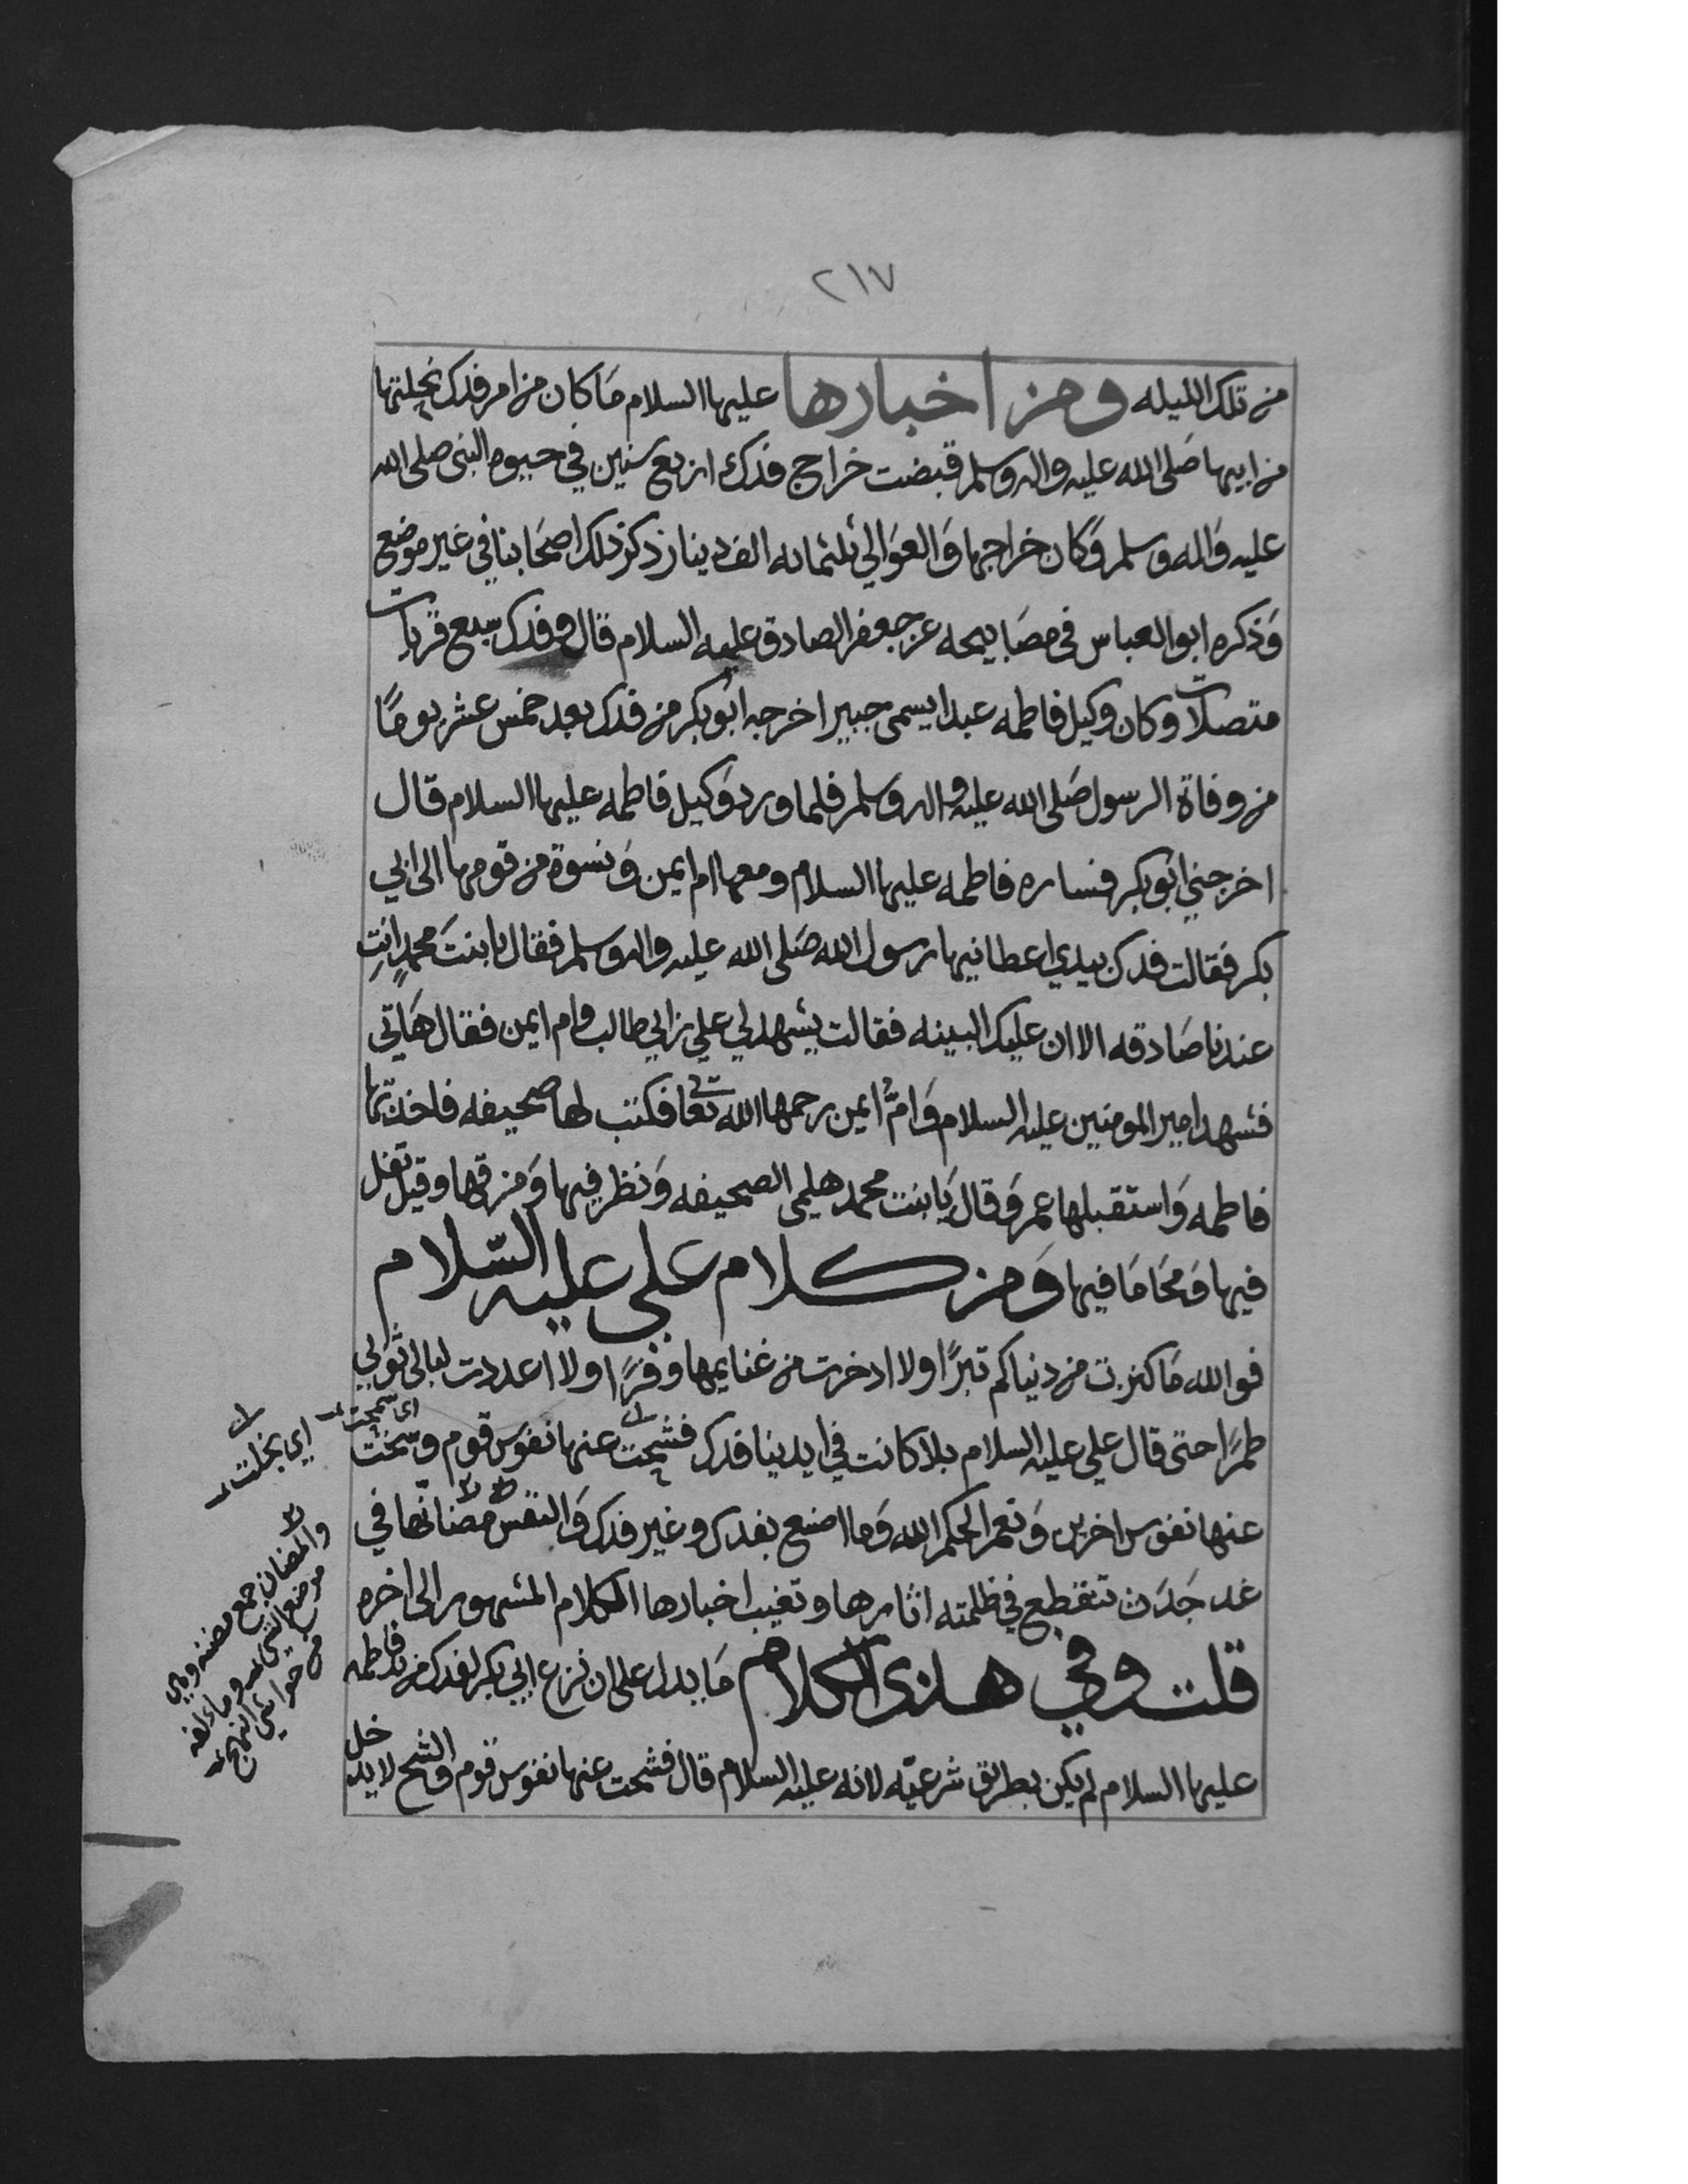 ٢١٧
من تلك الليله ومن اخبارها عليها السلام ما كان من امر فدك نحلتها
من ابيها صلى الله عليه واله وسلم قبضت خراج فدك اربع سنين في حيوه النبي صلى الله
عليه واله وسلم وكان خراجها والعوالي ثلثمائه الف دينار ذكر ذلك اصحابنا في غير موضع
وذكره ابو العباس في مصابيحه عن جعفر الصادق عليه السلام قال وفدك سبع قريات
متصلات وكان وكيل فاطمه عبدا يسمى جبيرا اخرجه ابو بكر من فدك بعد خمس عشر يومًا
من وفاة الرسول صلى الله عليه واله وسلم فلما ورد وكيل فاطمه عليها السلام قال
اخرجني ابو بكر فساره فاطمه عليها السلام ومعها ام ايمن ونسوة من قومها الى ابي
بكر فقالت فدك بيدي اعطانيها رسول الله صلى الله عليه واله وسلم فقال يا بنت محمدٍ انتِ
عندنا صادقه الا ان عليك البينه فقالت يشهد لي علي بن ابي طالب وام ايمن فقال هاتي
فشهد امير المومنين عليه السلام وامُّ ايمن رحمها الله تعا فكتب لها صحيفه فاخذتها
فاطمه واستقبلها عمر وقال يا بنت محمد هلمي الصحيفه ونظر فيها ومزقها وقيل تفل
فيها ومحا ما فيها ومن كلام علي عليه السّلام
فوالله ما كنزت من دنياكم تبرًا ولا ادخرت من غنايمها وفرًا ولا اعددت لبالى ثوبي
طمرًا حتى قال علي عليه السلام بلا كانت في ايدينا فدك فشحت عنها نفوس قوم وسخت
اي سمحت
عنها نفوس اخرين ونعم الحكم الله وما اصنع بفدك وغير فدك والنفس مضانّها في
غد جدث تنقطع في ظلمته اثارها وتغيب اخبارها الكلام المشهور الى اخره
قلت وفي هذى الكلام ما يدل على ان نزع ابي بكر لفدك من يد فاطمه
عليها السلام لم يكن بطريق شرعيّه لانه عليه السلام قال فشحت عنها نفوس قوم والشح لا يدخل
اي بخلت
والمضان جمع مضنه وهي
موضع الشي ومالفه
من حواشي النهج